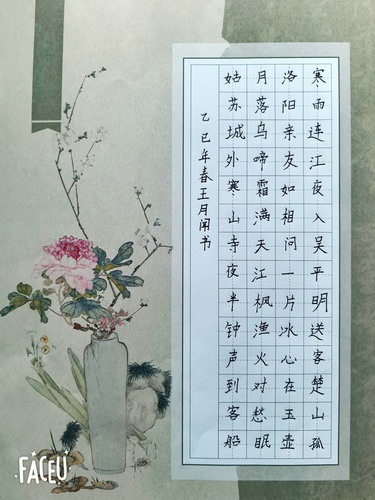 寒雨连江夜入吴平明送客楚山孤
洛阳亲友如相问一片冰心在玉壶
月落乌啼霜满天江枫渔火对愁眠
姑苏城外寒山寺夜半钟声到客船
乙巳年春王月闻书
FACEU